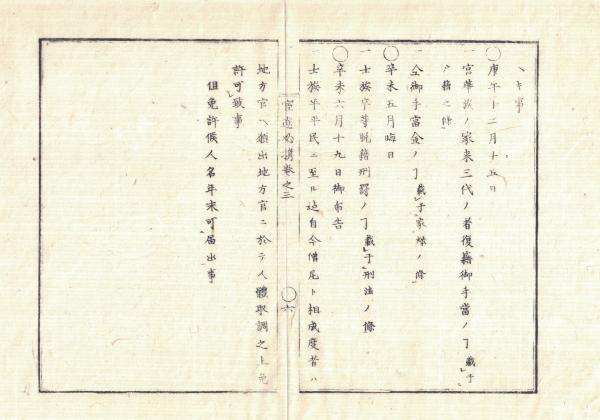 ヘキ事
○庚午十二月十五日
一宮華族ノ家来三代ノ者復籍御手當ノ丁載于
戸籍之條
一仝御手當金ノ丁載于家禄ノ條
○辛未五月晦日
一士族卒等脱籍刑罰ノ丁載于刑法ノ條
○辛未六月十九日御布告
一士族卒平民ニ至ル迠自今僧尼ト相成度者ハ
官途必携巻之三 ○六
地方官ヘ願出地方官ニ於テ人體取調之上免
許可致事
但免許候人名年末可届出事